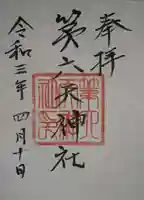 奉拝
第六天神社
令和三年 四月十日